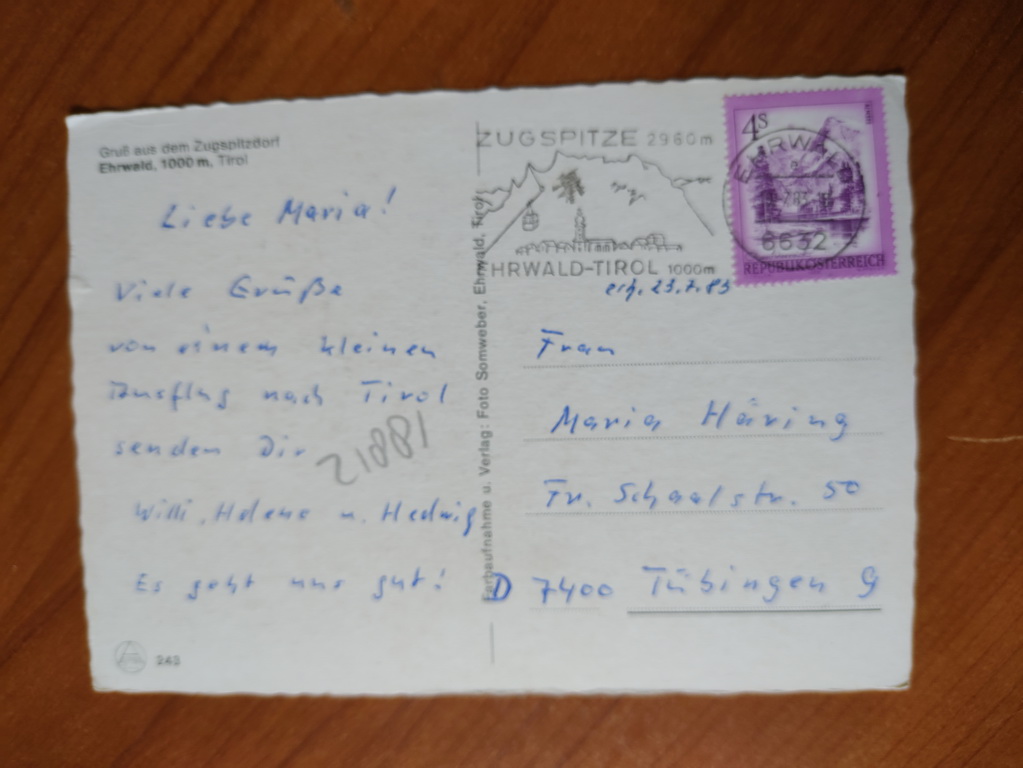 Gruß aus dem Zugspitzdorf
Ehrwald, 1000 m, Tirol
Liebe Maria!
Viele Grüße
von einem kleinen
Ausflug nach Tirol
senden Dir
Willi, Helene u. Hedwig
Es geht uns gut!
243
21881
Farbaufnahme u. Verlag: Foto Somweber, Ehrwald, Tirol
ZUGSPITZE 2960m
EHRWALD-TIROL 1000m
4S
EHRWALD
6632
REPUBLIK ÖSTERREICH
erh. 23.7.83
Frau
Maria Häring
Fr. Schaalstr. 50
D 7400 Tübingen 9